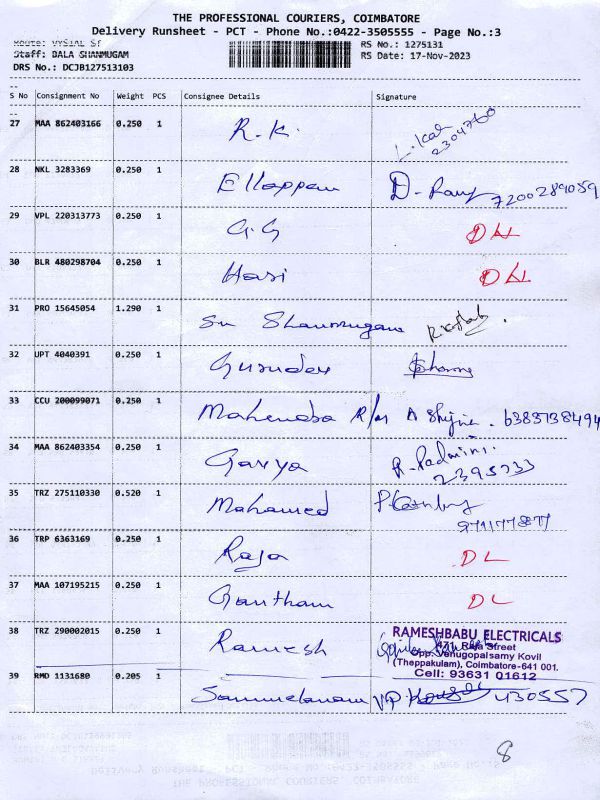 THE PROFESSIONAL COURIERS, COIMBATORE
Delivery Runsheet - PCT - Phone No.:0422-3505555 - Page No.:3
Route: VYSIAL ST
RS No.: 1275131
Staff: BALA SHANMUGAM
RS Date: 17-Nov-2023
DRS No.: DCJB127513103
S No Consignment No Weight PCS Consignee Details Signature
27 MAA 862403166 0.250 1 R.K. 2304760
28 NKL 3283369 0.250 1 Ellappan D-Ramy 7200289059
29 VPL 220313773 0.250 1 G.G DH
30 BLR 480298704 0.250 1 Hari DH
31 PRO 15645054 1.290 1 Sri Shanmugam
32 UPT 4040391 0.250 1 Gurudev
33 CCU 200099071 0.250 1 Mahendra R/m A 6383738494
34 MAA 862403354 0.250 1 Gavya R.Padmini. 2395733
35 TRZ 275110330 0.520 1 Mohamed
36 TRP 6363169 0.250 1 Raja DL
37 MAA 107195215 0.250 1 Gowtham DL
38 TRZ 290002015 0.250 1 Ramesh
RAMESHBABU ELECTRICALS
471, Raja Street
Opp. Venugopalsamy Kovil
(Theppakulam), Coimbatore-641 001.
Cell: 93631 01612
39 RMD 1131680 0.205 1 V.P. 430557
8